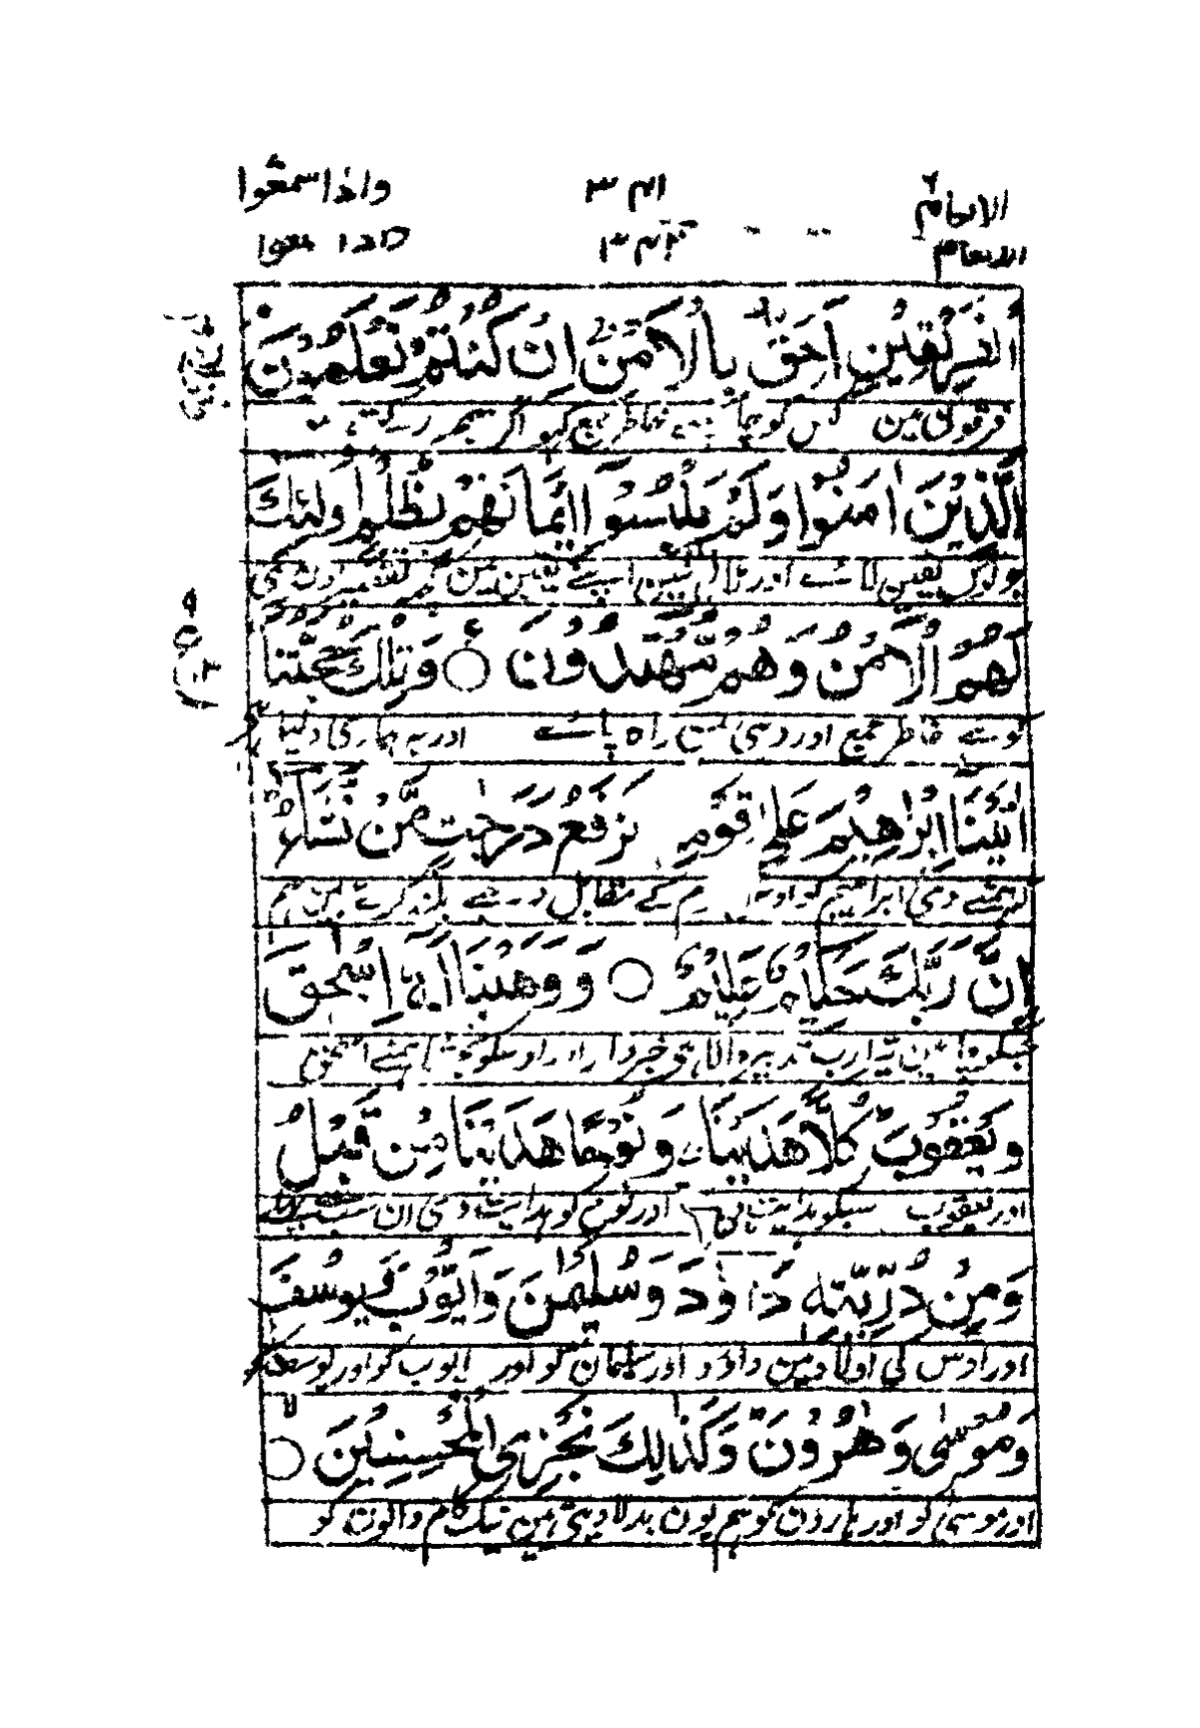 الانعام ۶ ۳ واذاسمعوا
الْفَرِيْقَيْنِ اَحَقُّ بِالْاَمْنِ اِنْ كُنْتُمْ تَعْلَمُوْنَ
کس کو اگر سمجھ رکھتے
الَّذِيْنَ اٰمَنُوْا وَلَمْ يَلْبِسُوْا اِيْمَانَهُمْ بِظُلْمٍ اُولٰٓئِكَ
یقین لائے اور اپنے یقین مین کچھ تقصیر اون ہی
لَهُمُ الْاَمْنُ وَهُمْ مُّهْتَدُوْنَ وَتِلْكَ حُجَّتُنَا
خاطر جمع اور وہی ہین راہ پائے اور یہ ہماری دلیل
اٰتَيْنٰهَا اِبْرٰهِيْمَ عَلٰى قَوْمِهٖ نَرْفَعُ دَرَجٰتٍ مَّنْ نَّشَآءُ
کہ ہمنے دی ابراہیم کو کے مقابل درجے بلند کرتے ہین ہم
اِنَّ رَبَّكَ حَكِيْمٌ عَلِيْمٌ وَوَهَبْنَا لَهٗٓ اِسْحٰقَ
جسکو چاہین تیرا رب تدبیر والا ہی خبردار اور اوسکو بخشا ہمنے اسحٰق
وَيَعْقُوْبَ كُلًّا هَدَيْنَا وَنُوْحًا هَدَيْنَا مِنْ قَبْلُ
اور یعقوب سبکو ہدایت دی اور نوح کو ہدایت دی ان سب سے پہلے
وَمِنْ ذُرِّيَّتِهٖ دَاوٗدَ وَسُلَيْمٰنَ وَاَيُّوْبَ وَيُوْسُفَ
اور اوس کی اولاد مین داؤد اور سلیمان کو اور ایوب کو اور یوسف کو
وَمُوْسٰى وَهٰرُوْنَ وَكَذٰلِكَ نَجْزِى الْمُحْسِنِيْنَ
اور موسیٰ کو اور ہارون کو ہم یون بدلا دیتے ہین نیک کام والون کو